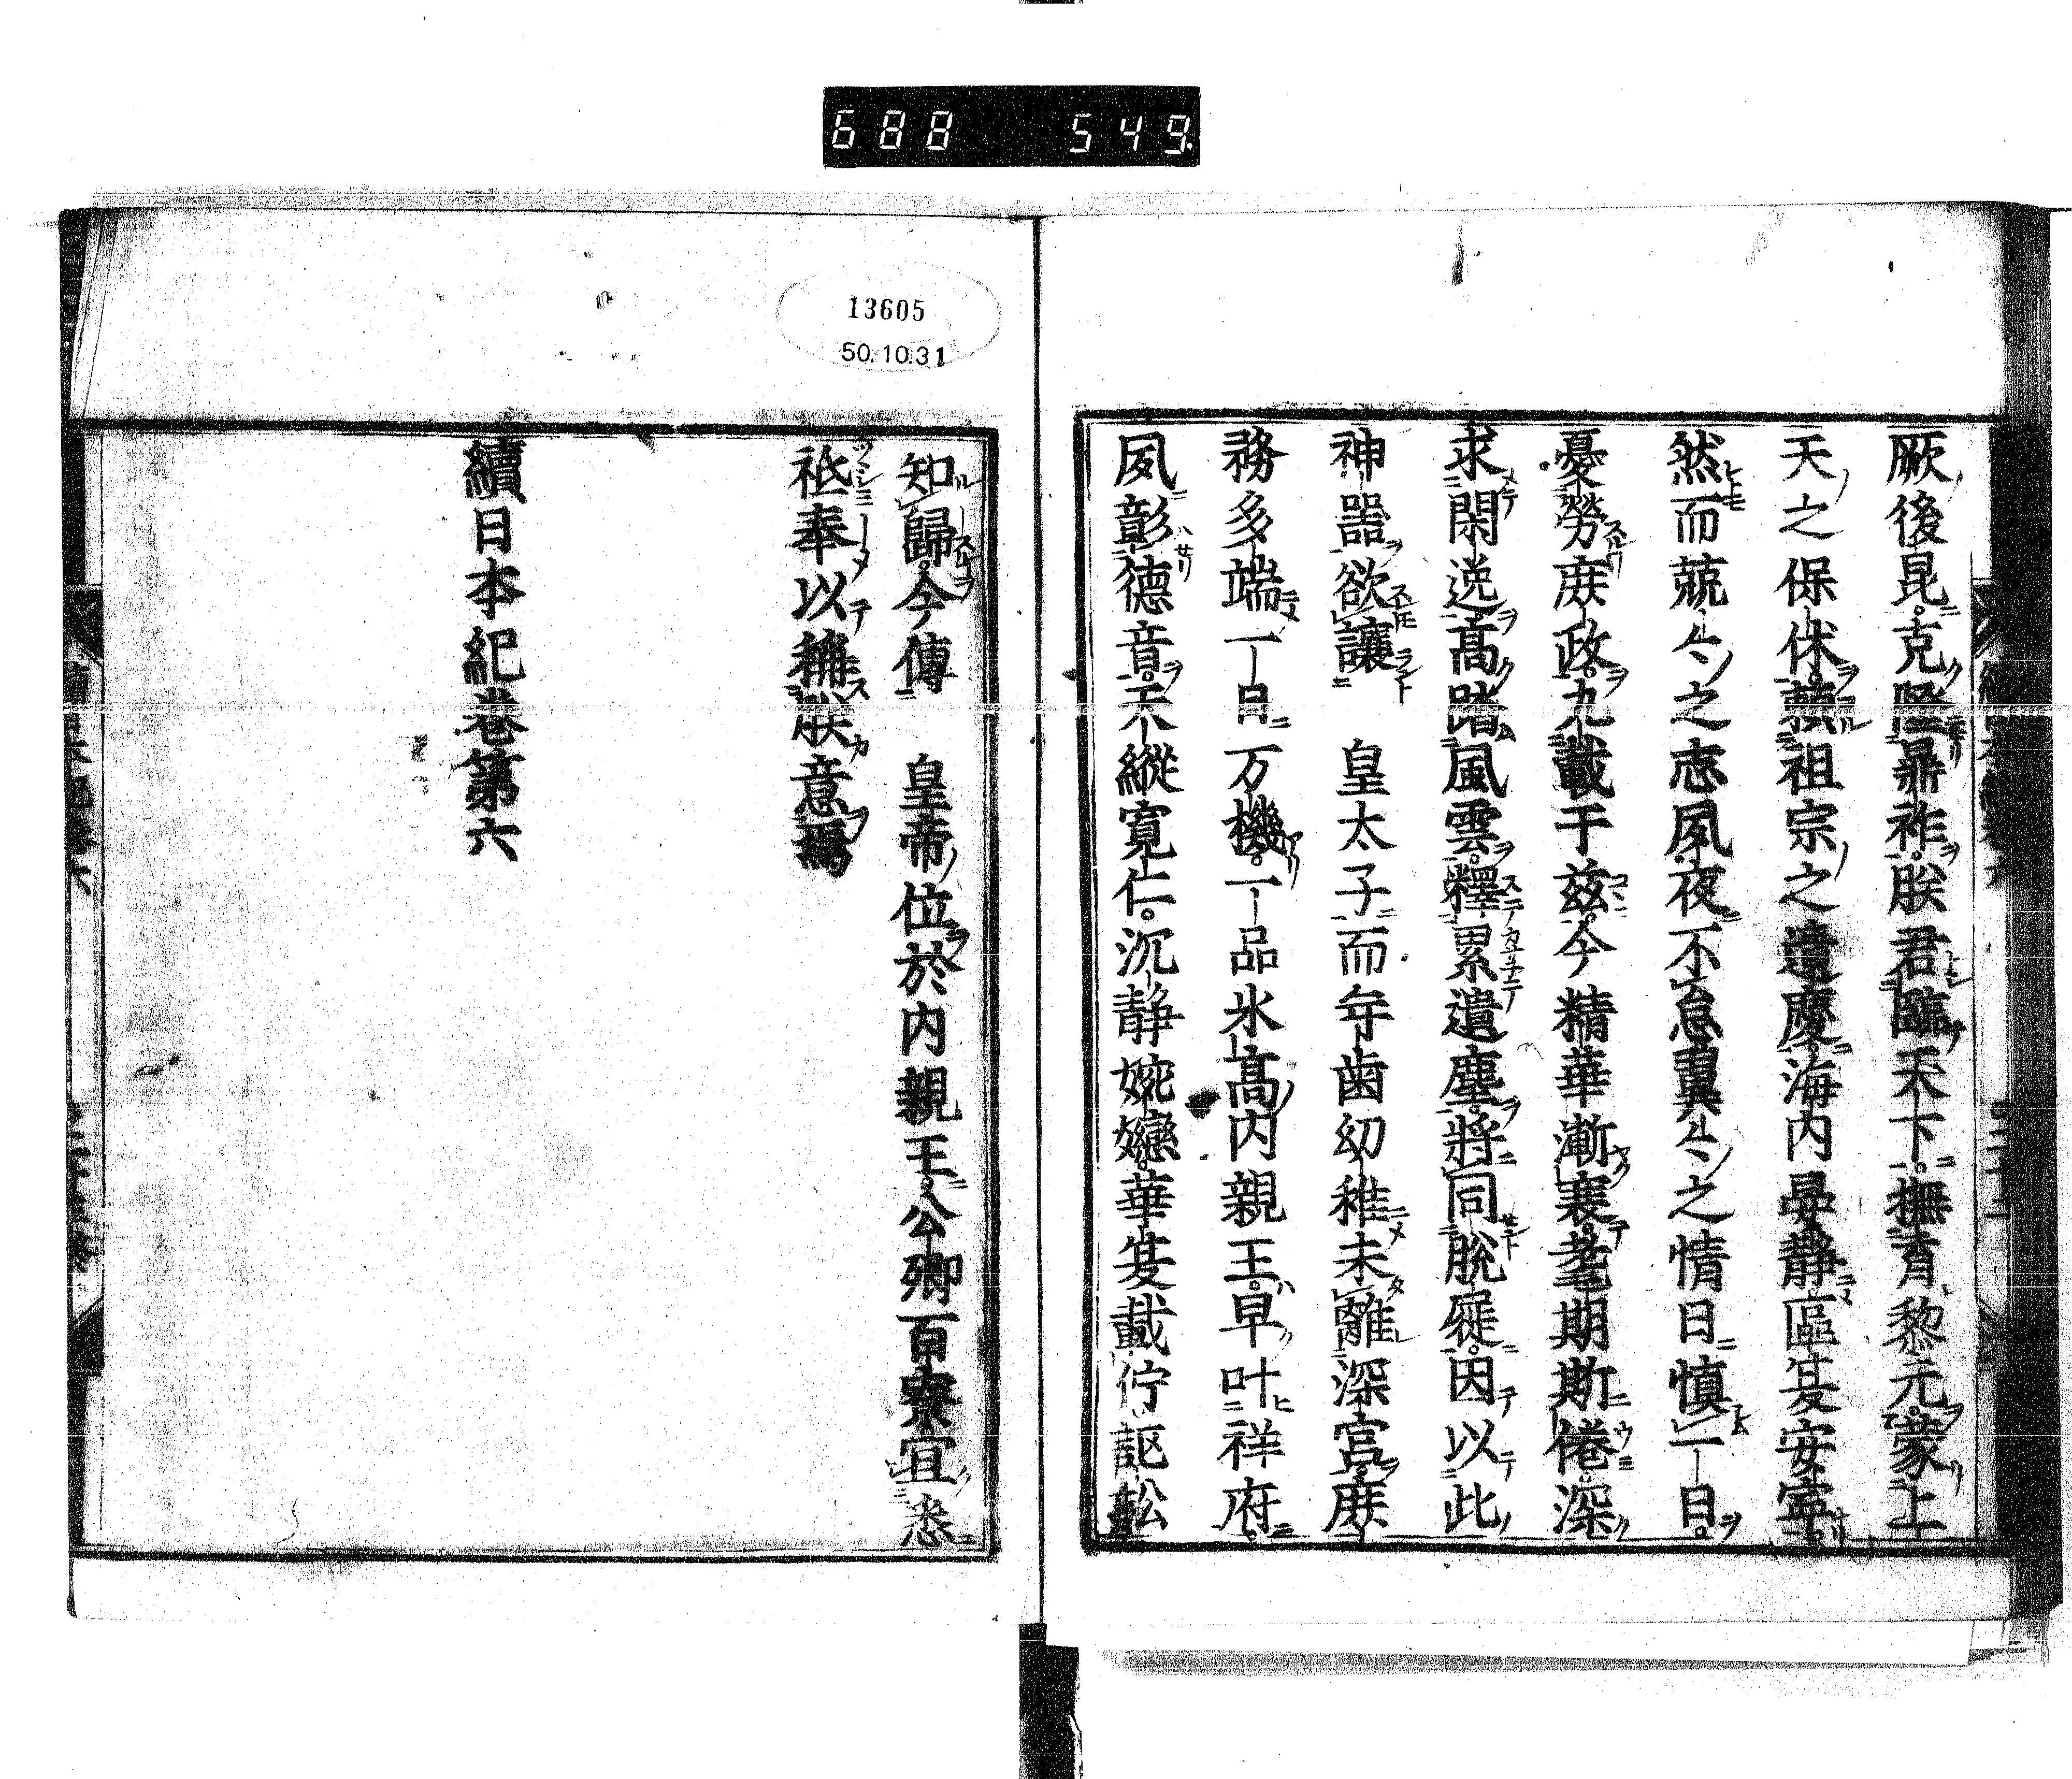 688 549.
13605
50.10.31
厥後昆克隆鼎祚朕君臨天下撫育黎元蒙上
天之保休頼祖宗之遺慶海内晏静區夏安寧
然而兢〻之志夙夜不怠翼〻之情日慎一日
憂勞庶政九載于茲今精華漸衰耄期斯倦深
求閑逸高踏風雲釋累遺塵將同脱屣因以此
神器欲讓　皇太子而年齒幼稚未離深宮庶
務多端一日万機一品氷高内親王早叶祥府
夙彰德音天縱寛仁沉静婉孌華夏載佇謳訟
知歸今傳　皇帝位於内親王公卿百寮宜悉
祗奉以稱朕意焉
續日本紀卷第六